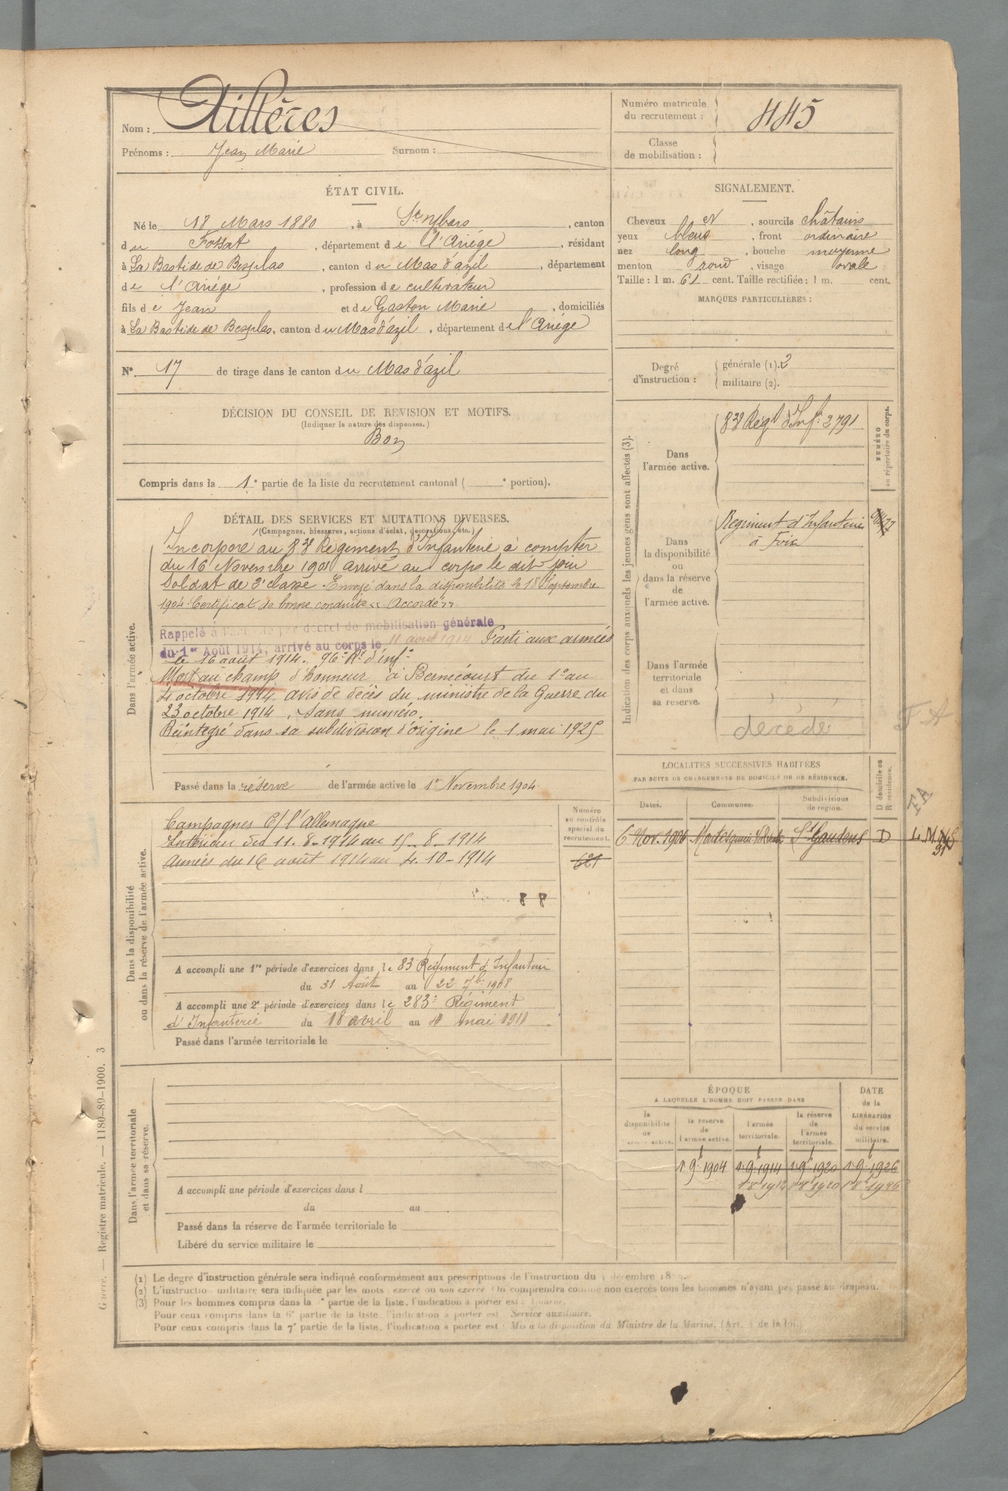 Nom : Aillères
Prénoms : Jean Marie Surnom :
Numéro matricule du recrutement : 445
Classe de mobilisation :
ÉTAT CIVIL.
Né le 18 Mars 1880, à Ste, canton
du Fossat, département de l'Ariége, résidant
à La Bastide de Besplas, canton du Mas d'azil, département
de l'Ariége, profession de cultivateur
fils de Jean et de Gaston Marie, domiciliés
à La Bastide de Besplas, canton du Mas d'azil, département de l'Ariége
N° 17 de tirage dans le canton du Mas d'azil
DÉCISION DU CONSEIL DE REVISION ET MOTIFS.
(Indiquer la nature des dispenses.)
Bon
Compris dans la 1e partie de la liste du recrutement cantonal ( e portion).
SIGNALEMENT.
Cheveux et, sourcils châtains
yeux bleus, front ordinaire
nez long, bouche moyenne
menton rond, visage ovale
Taille : 1 m. 61 cent. Taille rectifiée : 1 m. cent.
MARQUES PARTICULIÈRES :
Degré d'instruction : générale (1). 3
militaire (2).
DÉTAIL DES SERVICES ET MUTATIONS DIVERSES.
(Campagnes, blessures, actions d'éclat, décorations, etc.)
Dans l'armée active.
Incorporé au 83e Régiment d'Infanterie à compter
du 16 Novembre 1901 arrivé au corps le dit jour
Soldat de 2e classe. Envoyé dans la disponibilité le 18 Septembre
1904. Certificat de bonne conduite « Accordé »
Rappelé à l'activité par décret de mobilisation générale
du 1er Août 1914, arrivé au corps le 11 août 1914 Parti aux armées
le 16 août 1914. 96e Rt d'inf.
Mort au champ d'honneur à Bernécourt du 1er au
4 octobre 1914. avis de décès du ministre de la Guerre du
23 octobre 1914, sans numéro.
Réintégré dans sa subdivision d'origine le 1 mai 1925
Passé dans la réserve de l'armée active le 1er Novembre 1904
Indication des corps auxquels les jeunes gens sont affectés (3).
NUMÉRO au répertoire du corps.
Dans l'armée active.
83e Régt d'Inf. 3791
Dans la disponibilité ou dans la réserve de l'armée active.
Régiment d'Infanterie
à Foix
Dans l'armée territoriale et dans sa réserve.
décédé
Dans la disponibilité ou dans la réserve de l'armée active.
Campagnes C/ l'Allemagne
Intérieur du 11.8.1914 au 15.8.1914
Armées du 16 août 1914 au 4.10.1914
Numéro au contrôle spécial du recrutement.
621
A accompli une 1re période d'exercices dans le 83 Régiment d'Infanterie
du 31 Août au 22 7bre 1908
A accompli une 2e période d'exercices dans le 283e Régiment
d'Infanterie du 18 avril au mai 1911
Passé dans l'armée territoriale le
LOCALITÉS SUCCESSIVES HABITÉES
PAR SUITE DE CHANGEMENTS DE DOMICILE OU DE RÉSIDENCE.
Dates. Communes. Subdivisions de région. D domicile ou R résidence.
6 Nov. 1906 St Gaudens D
Dans l'armée territoriale et dans sa réserve.
A accompli une période d'exercices dans l
du au
Passé dans la réserve de l'armée territoriale le
Libéré du service militaire le
ÉPOQUE
A LAQUELLE L'HOMME DOIT PASSER DANS
la disponibilité de l'armée active.
la réserve de l'armée active.
l'armée territoriale.
la réserve de l'armée territoriale.
DATE de la LIBÉRATION du service militaire.
1 9 1904 1 9 1914 1 9 1920 1 9 1926
Guerre. — Registre matricule. — 1180-89-1900. 3
(1) Le degré d'instruction générale sera indiqué conformément aux prescriptions de l'instruction du décembre
(2) L'instruction militaire sera indiquée par les mots : exercé ou non exercé. On comprendra comme non exercés tous les hommes n'ayant pas passé au drapeau.
(3) Pour les hommes compris dans la partie de la liste, l'indication à porter est :
Pour ceux compris dans la 6e partie de la liste, l'indication à porter est : Service auxiliaire.
Pour ceux compris dans la 7e partie de la liste, l'indication à porter est : Mis à la disposition du Ministre de la Marine. (Art. de la loi.)